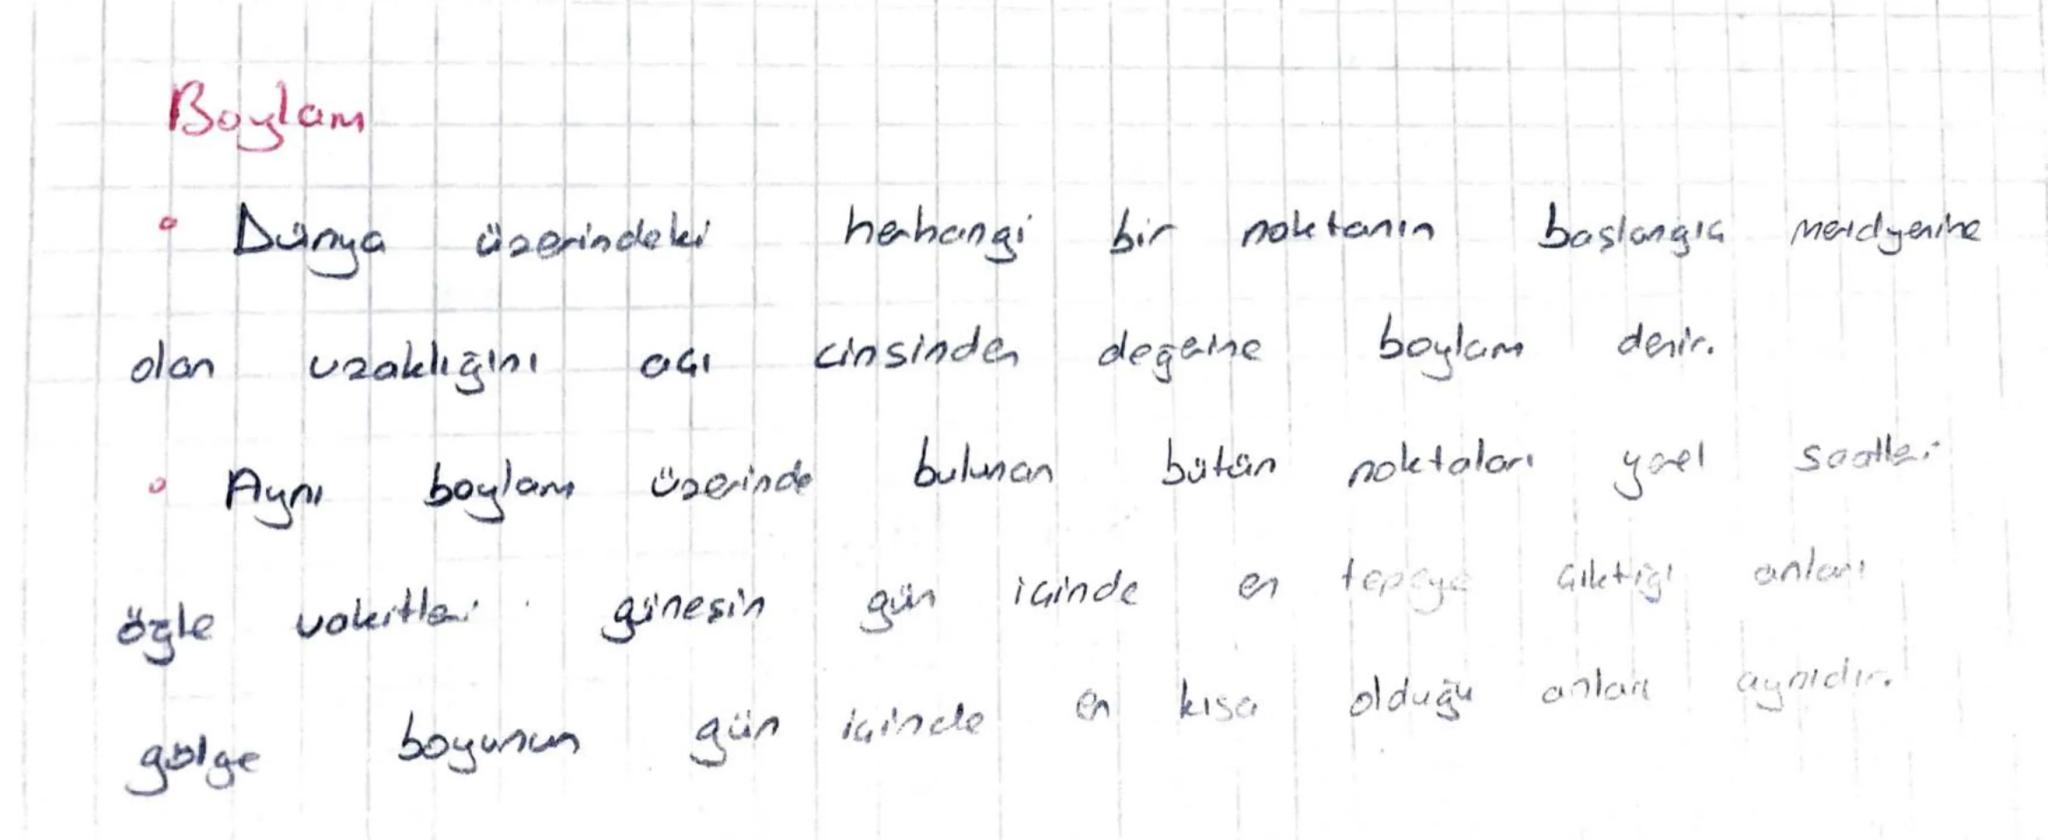 Boylam
° Dünya üzerindeki herhangi bir noktanın başlangıç merdyenine
olan uzaklığını açı cinsinden değerine boylam denir.
° Aynı boylam üzerinde bulunan bütün noktaları yerel saatleri
öğle vakitleri güneşin gün içinde en tepeye çıktığı anları
gölge boyunun gün içinde en kısa olduğu anları aynıdır.